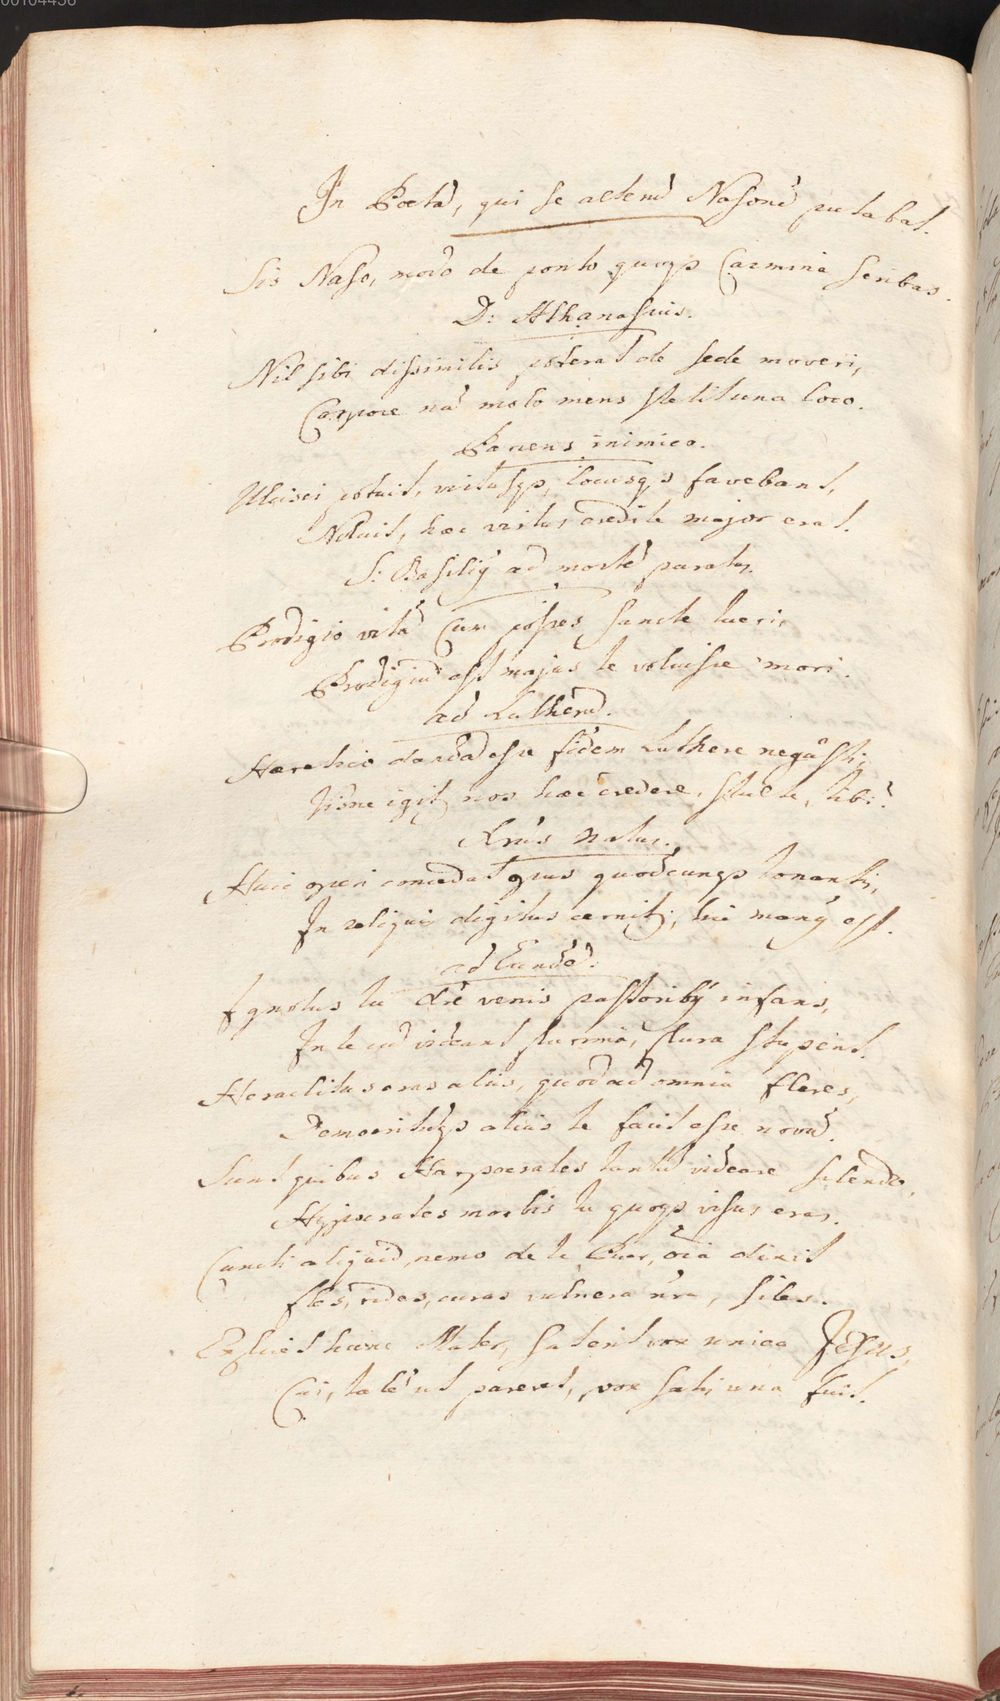 00104456
In Poetā, qui se alterū Nasonē putabat.
Sis Naso, modo de ponto quoqȝ Carmina scribas.
D: Athanasius.
Nil sibi dissimilis poterat de sede moveri,
Corpore nā moto mens stetit una loco.
Parcens inimico.
Ulcisci potuit, virtusqȝ, locusqȝ favebant,
Noluit, hæc virtus credite major erat.
S: Basiliȝ ad mortē paratus.
Prodigio vitā Cum posses sancte tueri,
Prodigiū est majus te voluisse mori.
ad Lutherū.
Hæretico dandā esse fidem Luthere negâsti,
Visne igitȝ nos hæc credere, stulte, tibi?
Xrūs natus.
Huic operi concedat opus quodcunqȝ tonantis,
In reliquis digitus cernitȝ, hic manȝ est.
ad Eundē.
Ignotus tu dīe venis pastoribȝ infans,
In te cū videant plurima, plura stupent.
Heraclitus eras aliis, quod ad omnia fleres,
Democritūqȝ alius te facit esse novū.
Sunt quibus Harpocrates tantū videare silendo,
Hyppocrates morbis tu quoqȝ visus eras.
Cuncti aliquid, nemo de te Puer, oīa dixit
fles, rides, curas vulnera nrā, siles.
Explicet hunc Mater, sat erit vox unica Jesus,
Cui, talē ut pareret, vox satis una fuit.